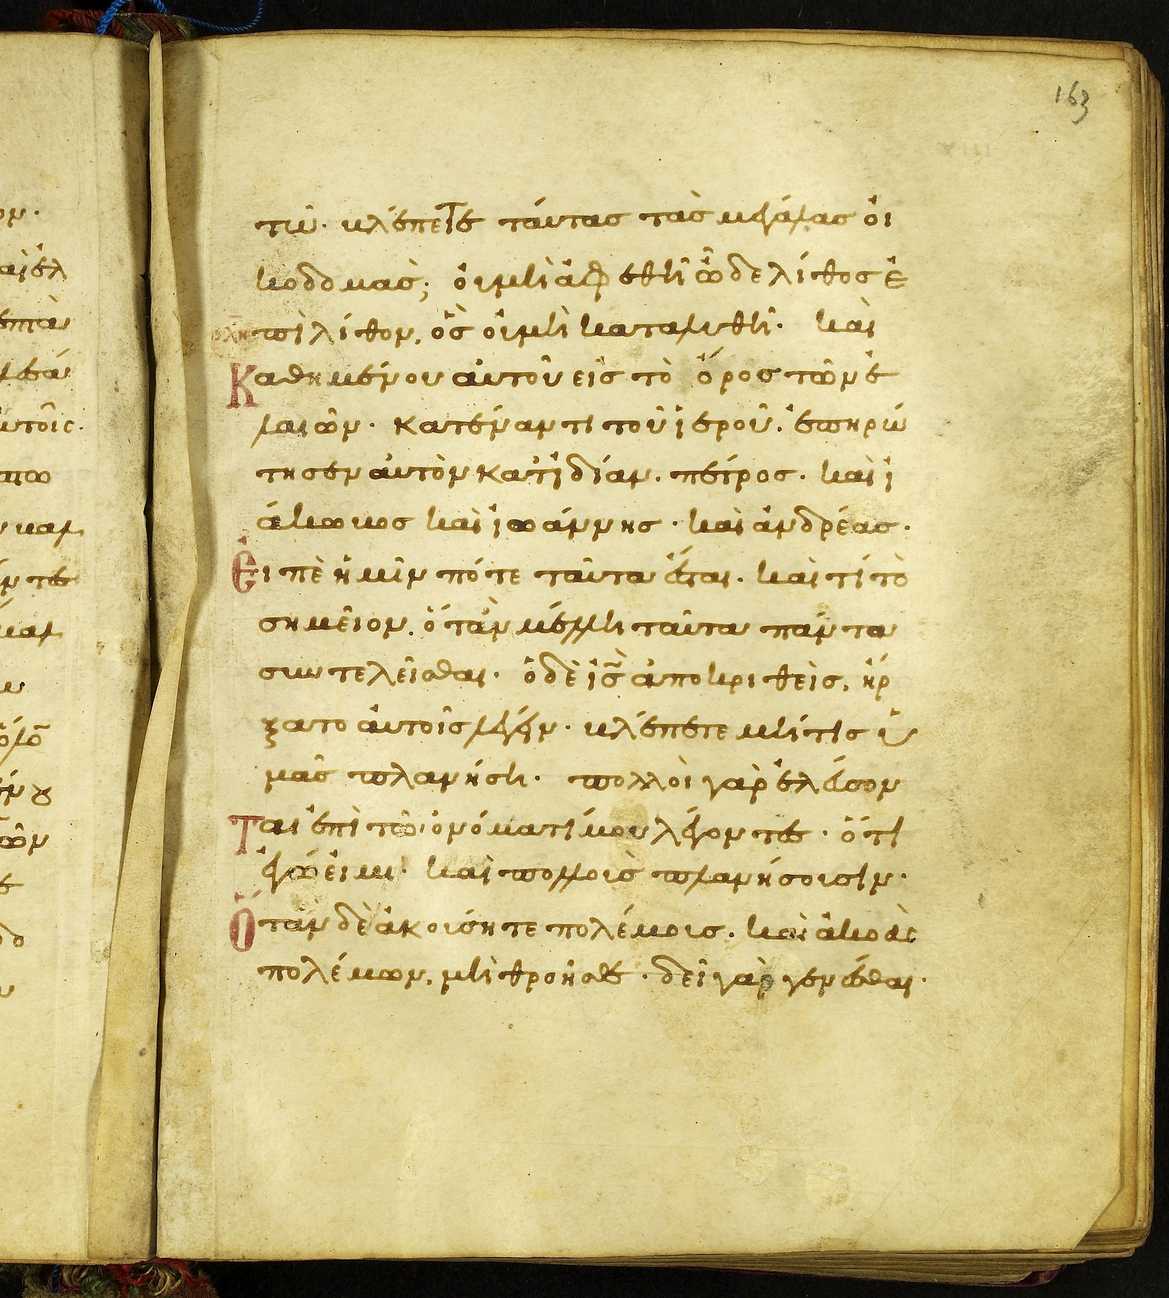 163
τῶ· βλέπετε ταύτας τὰς μεγάλας ὀι
κοδομὰς; ὀυμὴ ἀφεθῆ ὧδε λίθος ἐ
πὶ λίθον, ὃς ὀυμὴ καταλυθῆ· καὶ
Καθημένου ἀυτοῦ εἰς τὸ ὄρος τῶν ἐ
λαιῶν· κατέναντι τοῦ ἱεροῦ. ἐπηρώ
τησεν ἀυτὸν κατἰδίαν. πέτρος. καὶ ἰ
άκωβος καὶ ἰωάννης· καὶ ἀνδρέας.
Εἰπὲ ἡμῖν πότε ταῦτα ἔσται. καὶ τί τὸ
σημεῖον, ὅταν μέλλη ταῦτα πάντα
συντελεῖσθαι· ὁδὲ ἰς ἀποκριθεὶς, ἤρ
ξατο ἀυτοῖς λέγειν· βλέπετε μήτις ὑ
μᾶς πλανήση· πολλοὶ γὰρ ἐλέυσον
Ται ἐπὶ τῶ ὀνόματί μου λέγοντες· ὅτι
ἐγώ εἰμι· καὶ πολλοὺς πλανήσουσιν·
Ὅταν δὲ ἀκούσητε πολέμους. καὶ ἀκοὰς
πολέμων, μὴ θροῆσθε· δεῖ γὰρ γενέσθαι·